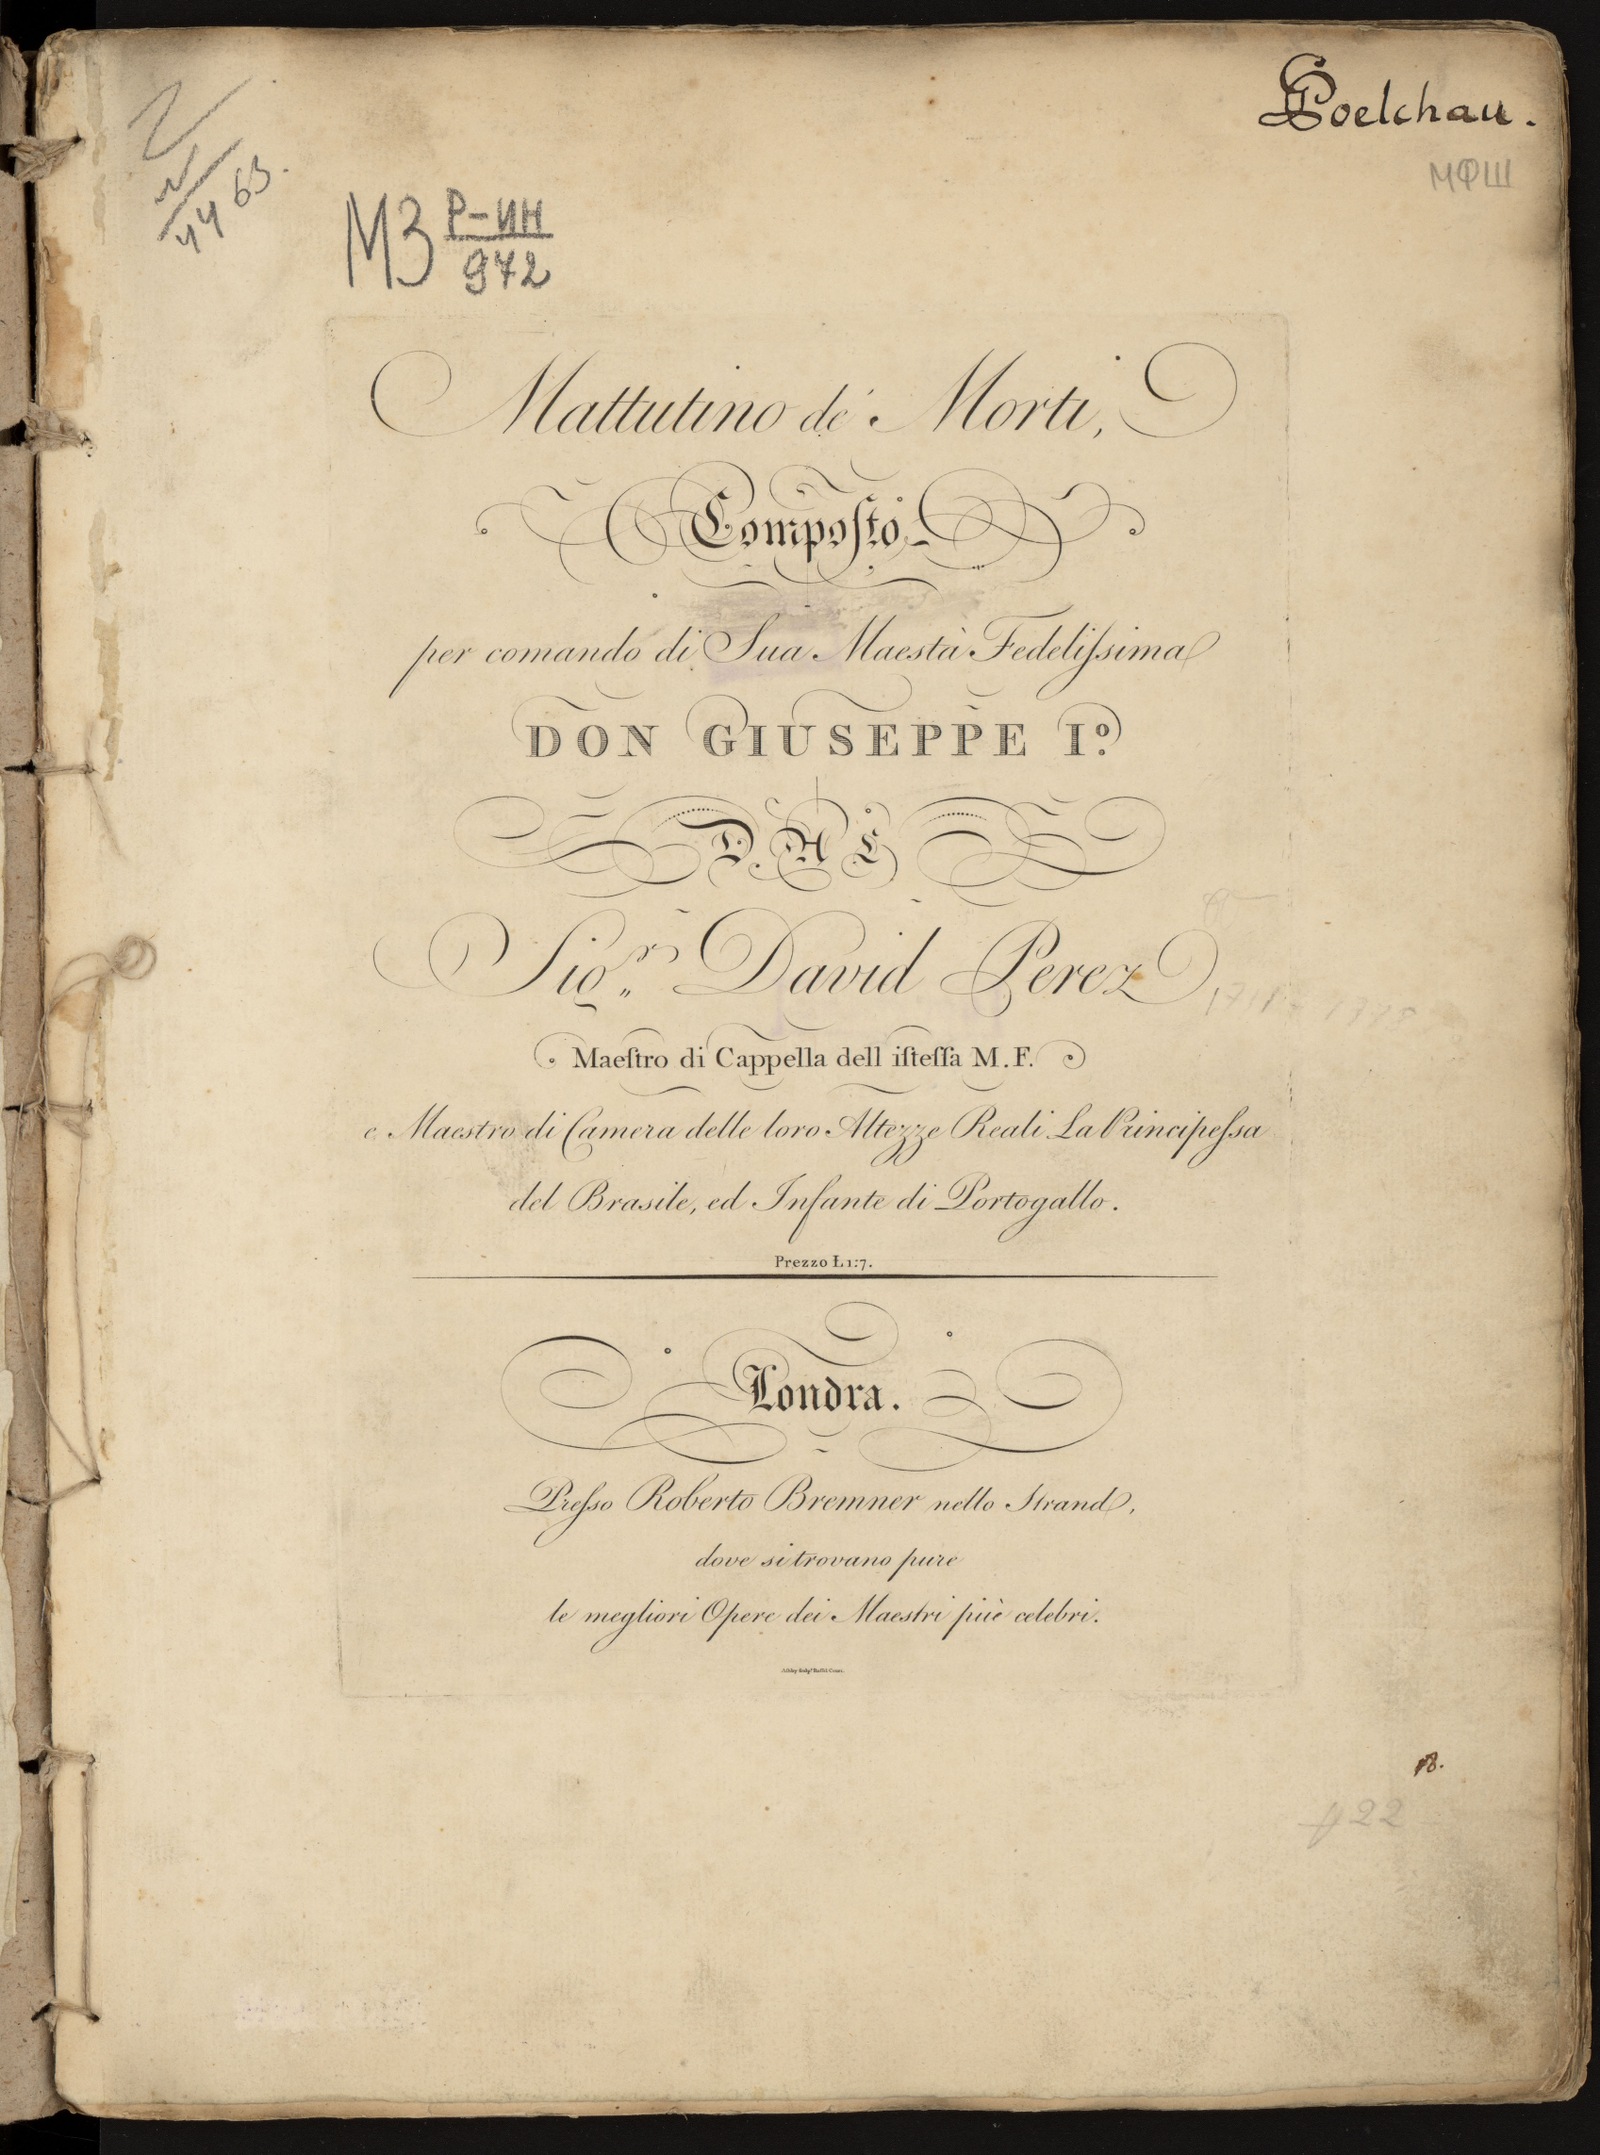 GPoelchau.
МФШ
4463.
МЗ Р-ИН
972
Mattutino de' Morti,
Compoſto
per comando di Sua Maestà Fedeliſsima
DON GIUSEPPE I.º
DAL
Sig.r David Perez
Maeſtro di Cappella dell iſteſſa M.F.
e Maestro di Camera delle loro Altezze Reali La Principeſsa
del Brasile, ed Infante di Portogallo.
Prezzo Ł1:7.
Londra.
Preſso Roberto Bremner nello Strand,
dove si trovano pure
le megliori Opere dei Maestri più celebri.
Aſhby ſculpt. Ruſſel Court.
22